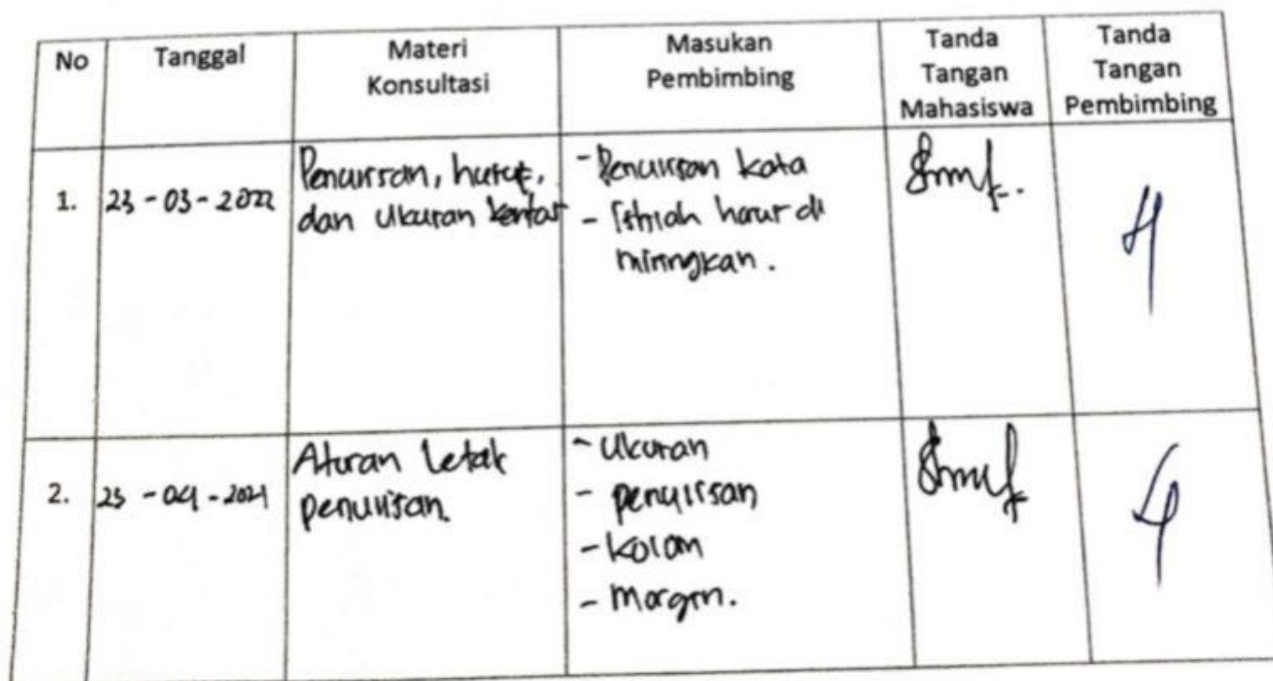 No Tanggal Materi Konsultasi Masukan Pembimbing Tanda Tangan Mahasiswa Tanda Tangan Pembimbing
1. 23-03-2022 Penulisan, huruf, - Penulisan kata
dan Ukuran kertas - Istilah harus di
miringkan.
2. Aturan Letak - Ukuran
penulisan. - penulisan
- Kolom
- Margin.